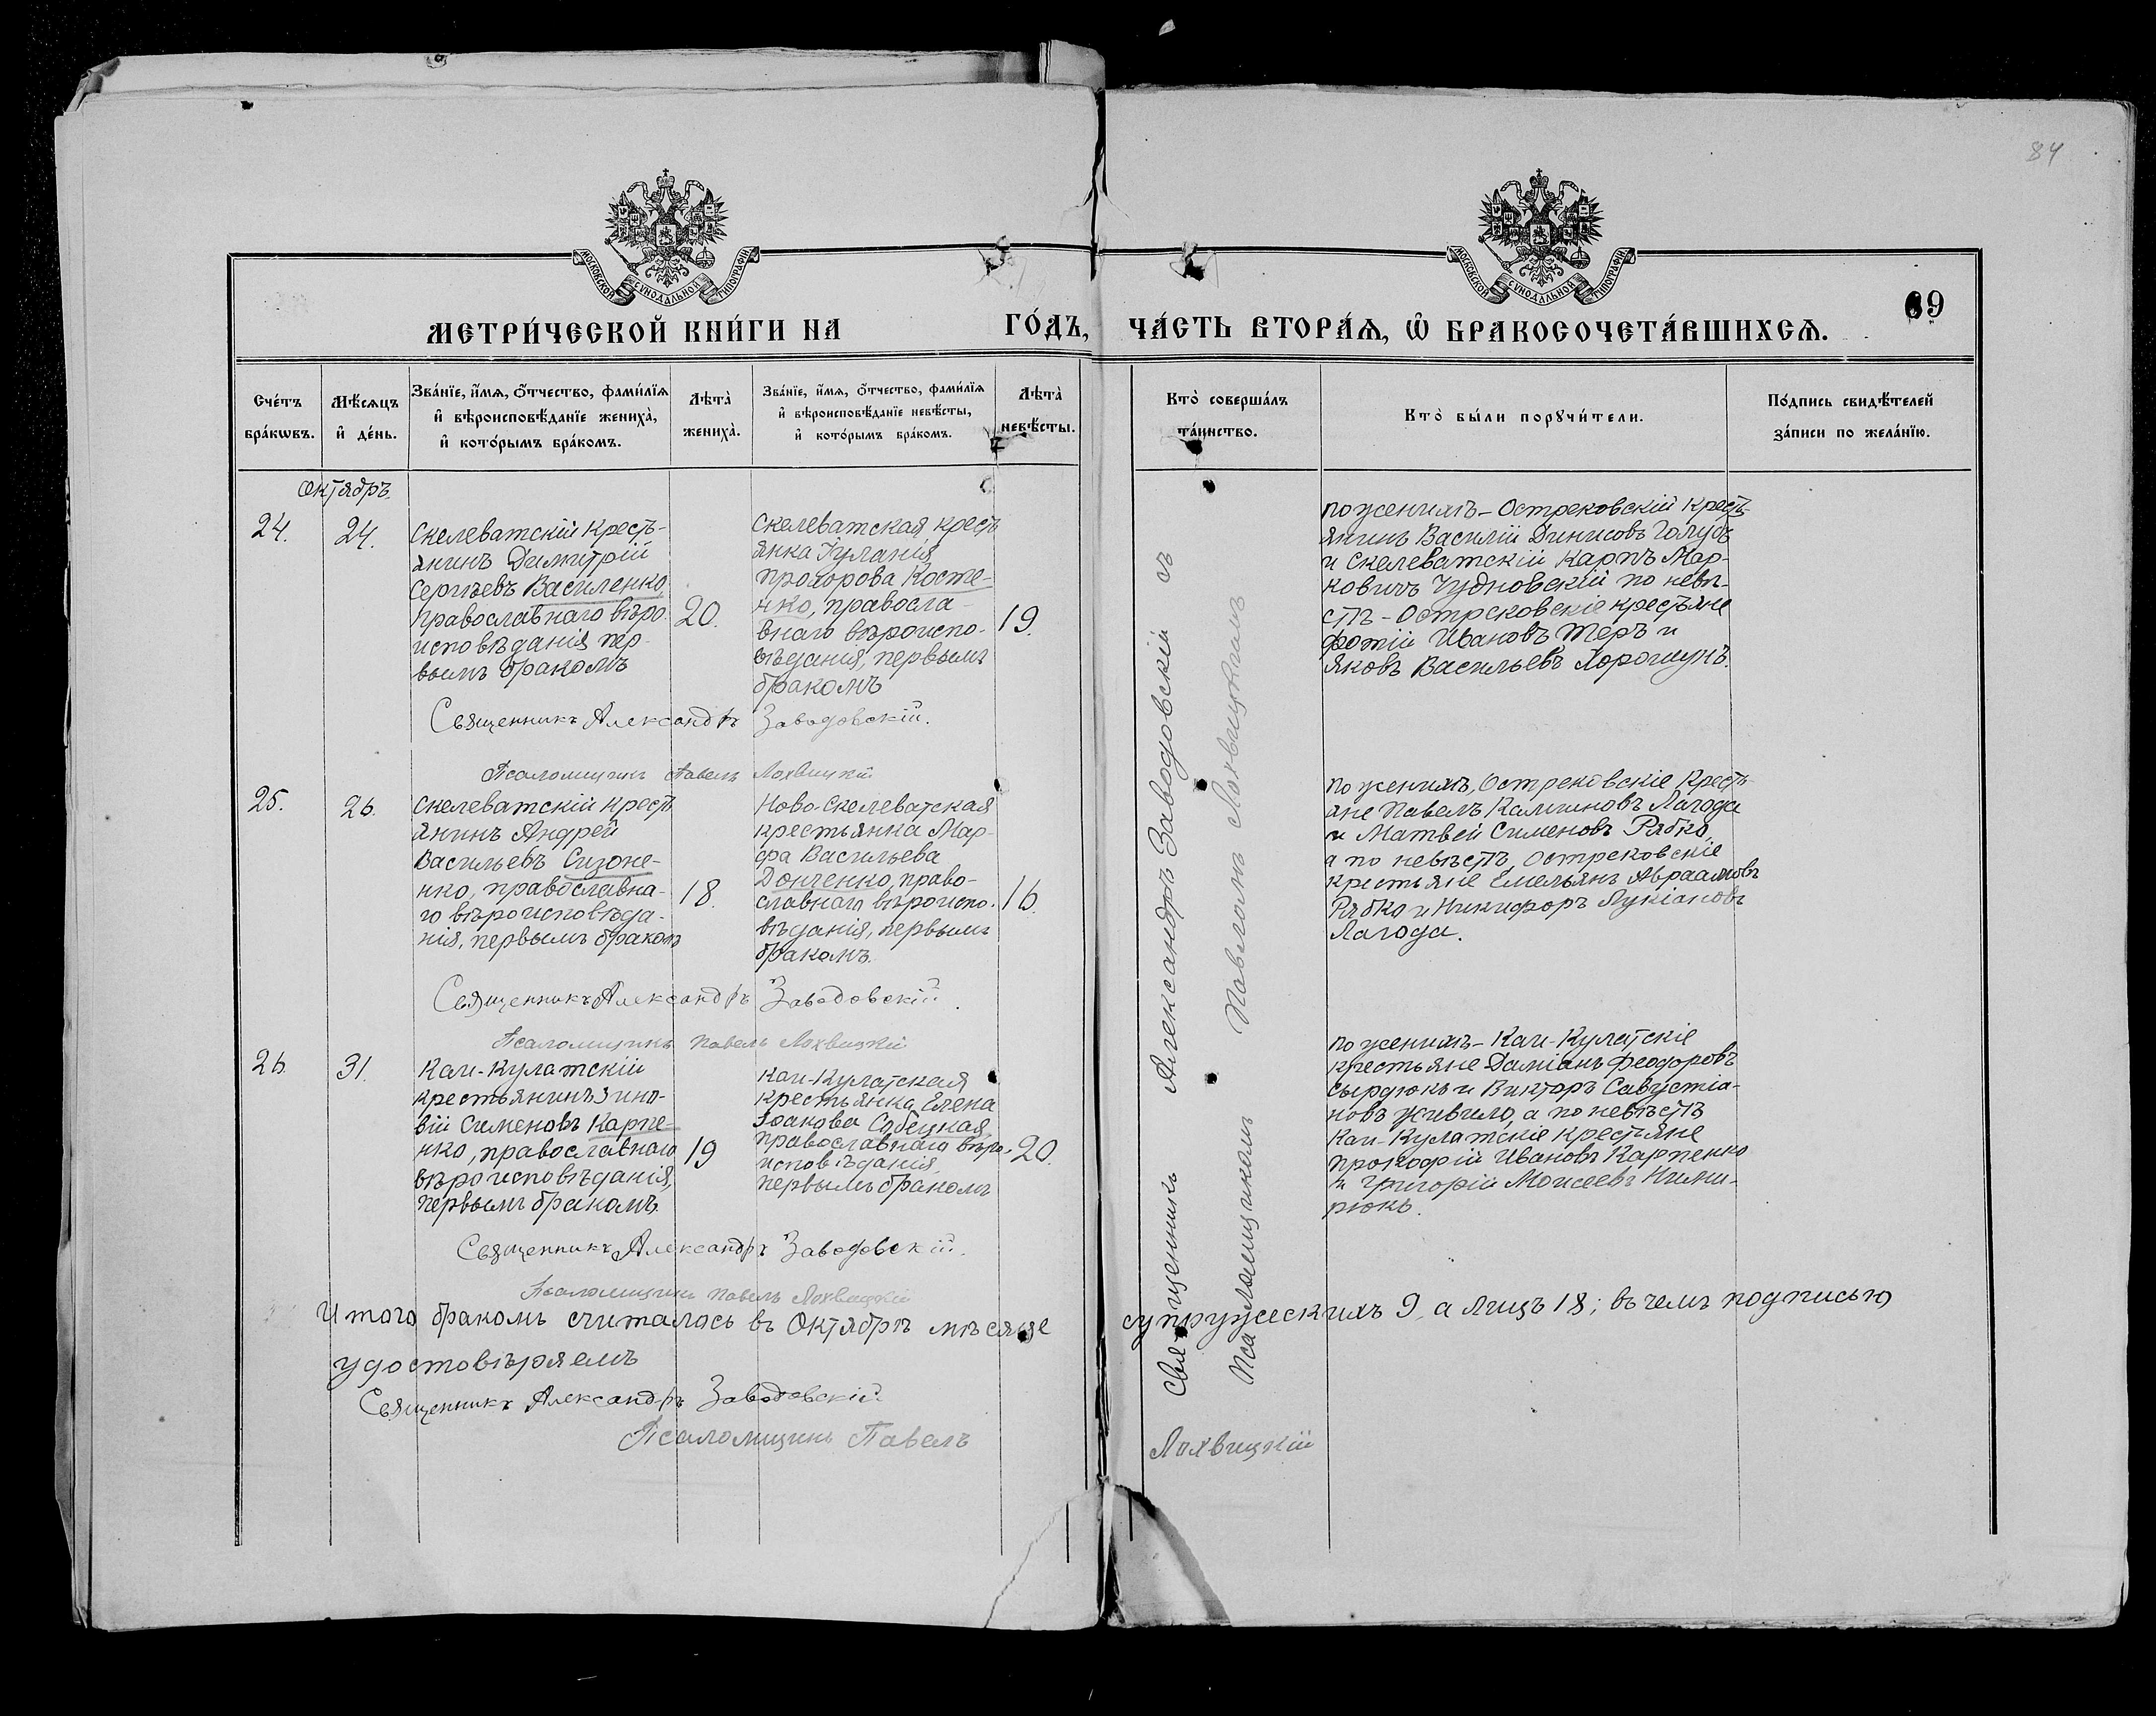 84
МОСКОВСКОЙ СѴНОДАЛЬНОЙ ТИПОГРАФІИ
МОСКОВСКОЙ СѴНОДАЛЬНОЙ ТИПОГРАФІИ
69
МЕТРИ́ЧЕСКОЙ КНИ́ГИ НА ГО́ДЪ, ЧА́СТЬ ВТОРА́Ѧ, Ѽ БРАКОСОЧЕТА́ВШИХСѦ.
Сче́тъ
бра́кѡвъ.
Мѣ́сѧцъ
и҆ де́нь.
Зва́нїе, и҆́мѧ, ѻ҆́тчество, фами́лїѧ
и҆ вѣроисповѣ́данїе жениха̀,
и҆ кото́рымъ бра́комъ.
Лѣта̀
жениха̀.
Зва́нїе, и҆́мѧ, ѻ҆́тчество, фами́лїѧ
и҆ вѣроисповѣ́данїе невѣ́сты,
и҆ кото́рымъ бра́комъ.
Лѣта̀
невѣ́сты.
Кто̀ соверша́лъ
та́инство.
Кто̀ бы́ли порꙋчи́тели.
По́дпись свидѣ́телей
за́писи по жела́нїю.
Октябрь.
24.
24.
Скелеватскій кресть-
янинъ Димитрій
Сергѣевъ Василенко
православнаго вѣро-
исповѣданія пер-
вымъ бракомъ
20.
Скелеватская кресть
янка Іуланія
Прохорова Косте-
нко, правосла-
внаго вѣроиспо-
вѣданія, первымъ
бракомъ
19.
по женихѣ – Остреховскій кресть-
янинъ Василій Динисовъ Голубъ
и Скелеватскій Карпъ Мар-
ковичъ Чудновскій по невѣ-
стѣ – Остреховскіе крестьяне
Фотій Ивановъ Теръ и
Яковъ Васильевъ Хорошунъ.
Священникъ Александръ Заводовскій.
Псаломщикъ Павелъ Лохвицкій
25.
26.
Скелеватскій крест
янинъ Андрей
Васильевъ Сизоне-
нко, православна-
го вѣроисповѣда-
нія, первымъ браком
18.
Ново-Скелеватская
крестьянка Мар-
фа Васильева
Донченко, право-
славнаго вѣроиспо-
вѣданія, первымъ
бракомъ.
16.
по женихѣ, Остреховскіе кресть-
яне Павелъ Калининовъ Лагода
и Матвей Сименовъ Рябко,
а по невѣстѣ, Остреховскіе
крестьяне Емельянъ Авраамовъ
Рябко и Никифоръ Лукіановъ
Лагода.
Священникъ Александръ Заводовскій.
Псаломщикъ Павелъ Лохвицкій
26.
31.
Кам-Кулатскій
крестьянинъ Зино-
вій Сименовъ Карпе-
нко, православнаго
вѣроисповѣданія,
первымъ бракомъ.
19
Кам-Кулатская
крестьянка Елена
Іоакова Собецкая,
православнаго вѣро-
исповѣданія,
первымъ бракомъ
20.
по женихѣ – Кам-Кулатскіе
крестьяне Даміанъ Феодоровъ
Сырдюкъ и Викторъ Савустіа-
новъ Живило, а по невѣстѣ
Кам-Кулатскіе крестьяне
Прокофій Ивановъ Карпенко
и Григорій Моисеевъ Ними-
рюкъ.
Священникъ Александръ Заводовскій.
Псаломщикъ Павелъ Лохвицкій
Священникъ Александръ Заводовскій съ
Псаломщикомъ Павломъ Лохвицкимъ
Итого бракомъ считалось въ Октябрѣ мѣсяце супружескихъ 9, а лицъ 18; въ чемъ подписью
удостовѣряемъ
Священникъ Александръ Заводовскій.
Псаломщикъ Павелъ Лохвицкій